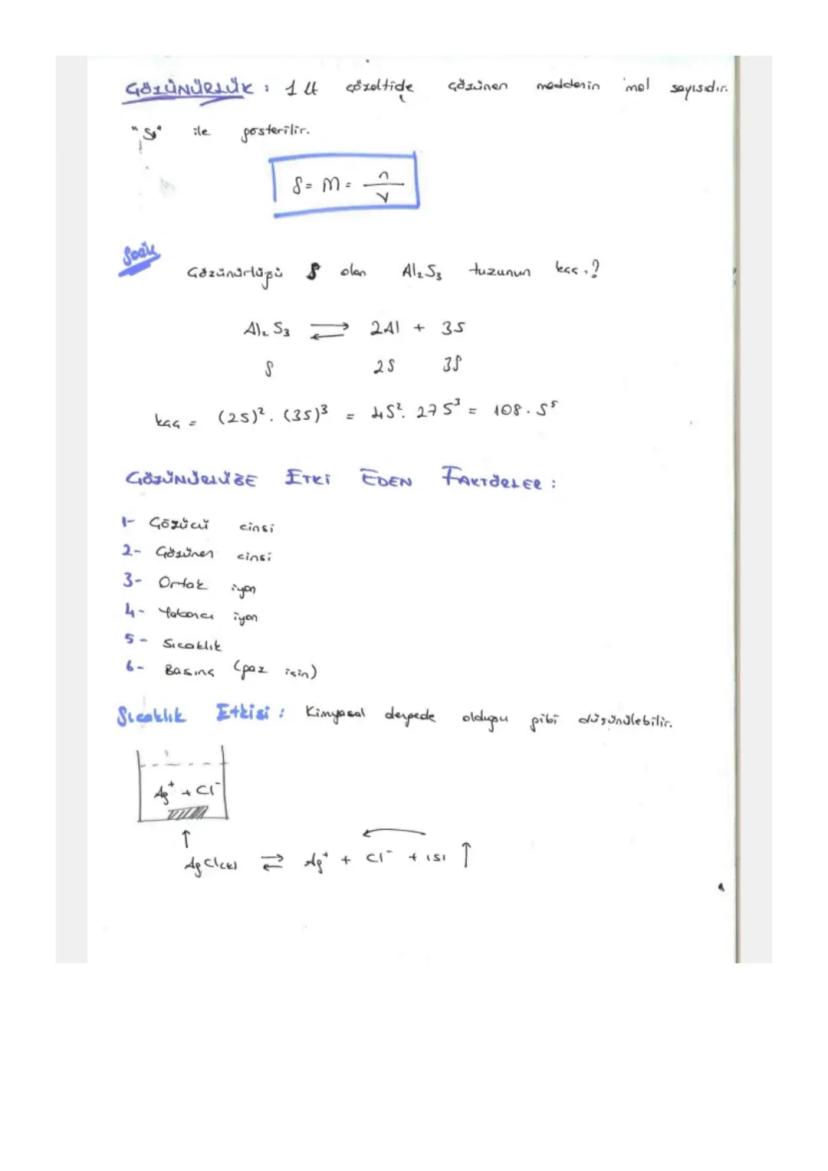 ÇÖZÜNÜRLÜK : 1 lt çözeltide çözünen maddenin mol sayısıdır.
"S" ile gösterilir.
S = M = n/V
Soru
Çözünürlüğü S olan Al₂S₃ tuzunun kçç.?
Al₂S₃ ⇌ 2Al + 3S
S 2S 3S
kçç = (2S)² . (3S)³ = 4S². 27S³ = 108 . S⁵
ÇÖZÜNÜRLÜĞE ETKİ EDEN FAKTÖRLER :
1- Çözücü cinsi
2- Çözünen cinsi
3- Ortak iyon
4- Yabancı iyon
5- Sıcaklık
6- Basınç (gaz için)
Sıcaklık Etkisi : Kimyasal dengede olduğu gibi düşünülebilir.
Ag⁺ + Cl⁻
↑
AgCl(k) ⇌ Ag⁺ + Cl⁻ + ısı ↑